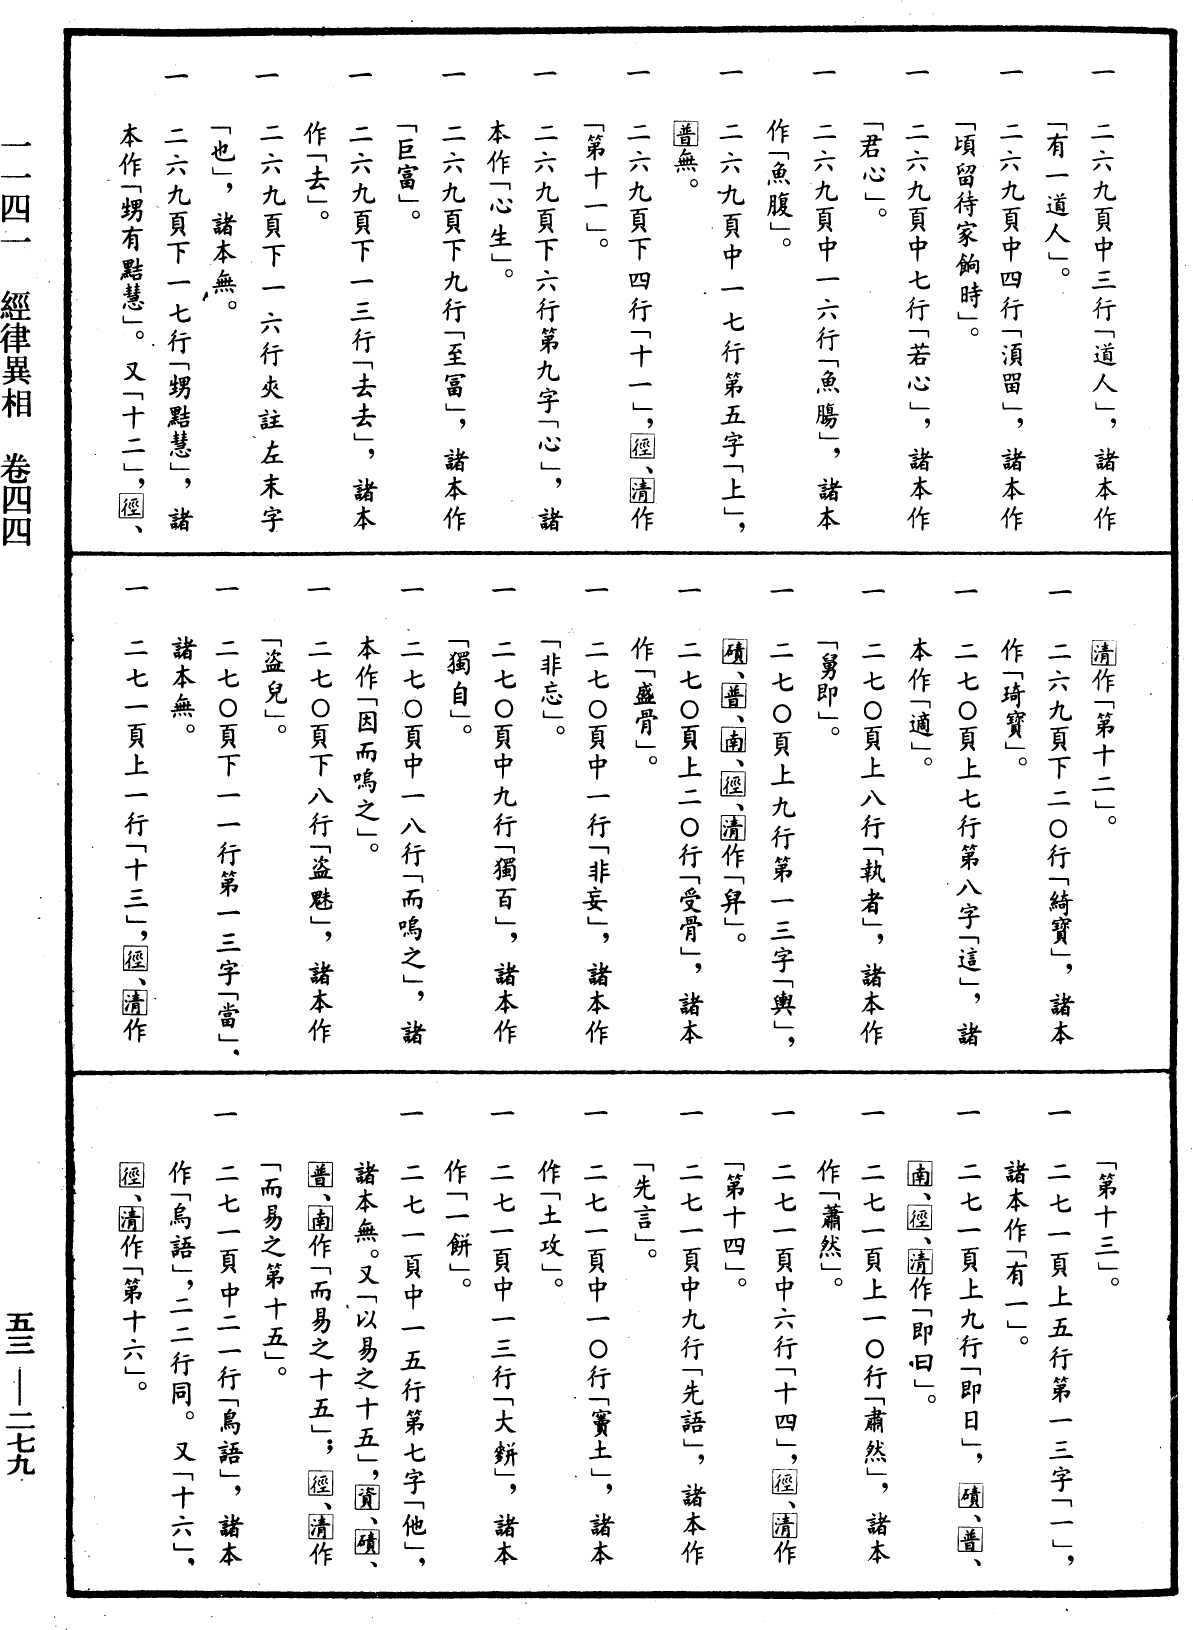 一　二六九頁中三行「道人」，諸本作
「有一道人」。
一　二六九頁中四行「湏畱」，諸本作
「頃留待家餉時」。
一　二六九頁中七行「若心」，諸本作
「君心」。
一　二六九頁中一六行「魚膓」，諸本
作「魚腹」。
一　二六九頁中一七行第五字「上」，
普無。
一　二六九頁下四行「十一」，徑、清作
「第十一」。
一　二六九頁下六行第九字「心」，諸
本作「心生」。
一　二六九頁下九行「至冨」，諸本作
「巨富」。
一　二六九頁下一三行「去去」，諸本
作「去」。
一　二六九頁下一六行夾註左末字
「也」，諸本無。
一　二六九頁下一七行「甥黠慧」，諸
本作「甥有黠慧」。又「十二」，徑、
清作「第十二」。
一　二六九頁下二〇行「綺寶」，諸本
作「琦寶」。
一　二七〇頁上七行第八字「這」，諸
本作「適」。
一　二七〇頁上八行「執者」，諸本作
「舅即」。
一　二七〇頁上九行第一三字「輿」，
磧、普、南、徑、清作「舁」。
一　二七〇頁上二〇行「受骨」，諸本
作「盛骨」。
一　二七〇頁中一行「非妄」，諸本作
「非忘」。
一　二七〇頁中九行「獨百」，諸本作
「獨自」。
一　二七〇頁中一八行「而嗚之」，諸
本作「因而嗚之」。
一　二七〇頁下八行「盜魅」，諸本作
「盜兒」。
一　二七〇頁下一一行第一三字「當」，
諸本無。
一　二七一頁上一行「十三」，徑、清作
「第十三」。
一　二七一頁上五行第一三字「一」，
諸本作「有一」。
一　二七一頁上九行「即日」，磧、普、
南、徑、清作「即曰」。
一　二七一頁上一〇行「肅然」，諸本
作「蕭然」。
一　二七一頁中六行「十四」，徑、清作
「第十四」。
一　二七一頁中九行「先語」，諸本作
「先言」。
一　二七一頁中一〇行「竇土」，諸本
作「土攻」。
一　二七一頁中一三行「大餅」，諸本
作「一餅」。
一　二七一頁中一五行第七字「他」，
諸本無。又「以易之十五」，資、磧、
普、南作「而易之十五」；徑、清作
「而易之第十五」。
一　二七一頁中二一行「鳥語」，諸本
作「烏語」，二二行同。又「十六」，
徑、清作「第十六」。
一一四一　經律異相　卷四四
五三——二七九